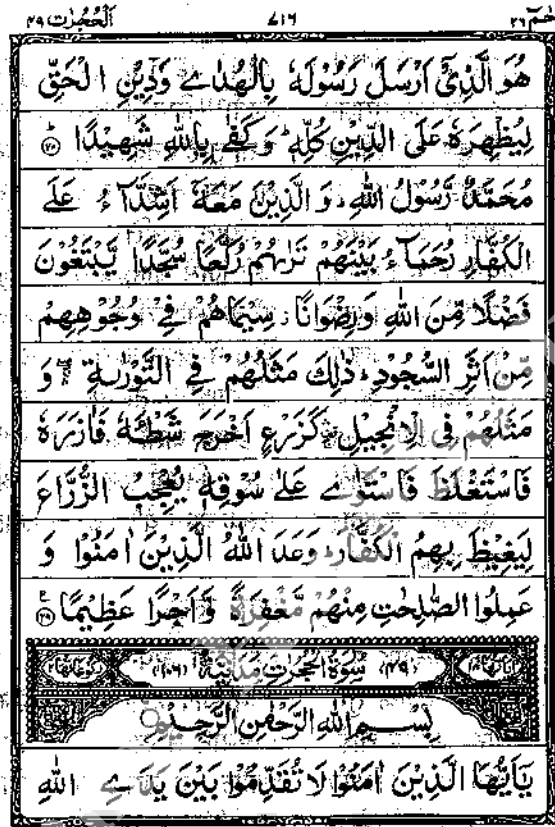 الحجرات ٤٩ ٧١٦ حٰمٓ ٢٦
هُوَ الَّذِيْٓ اَرْسَلَ رَسُوْلَهٗ بِالْهُدٰى وَدِيْنِ الْحَقِّ
لِيُظْهِرَهٗ عَلَى الدِّيْنِ كُلِّهٖ ؕ وَكَفٰى بِاللّٰهِ شَهِيْدًا ﴿۲۸﴾
مُحَمَّدٌ رَّسُوْلُ اللّٰهِ ؕ وَ الَّذِيْنَ مَعَهٗٓ اَشِدَّآءُ عَلَى
الْكُفَّارِ رُحَمَآءُ بَيْنَهُمْ تَرٰىهُمْ رُكَّعًا سُجَّدًا يَّبْتَغُوْنَ
فَضْلًا مِّنَ اللّٰهِ وَرِضْوَانًا ؗ سِيْمَاهُمْ فِيْ وُجُوْهِهِمْ
مِّنْ اَثَرِ السُّجُوْدِ ؕ ذٰلِكَ مَثَلُهُمْ فِي التَّوْرٰىةِ ۛۖ وَ
مَثَلُهُمْ فِي الْاِنْجِيْلِ ۛ كَزَرْعٍ اَخْرَجَ شَطْـَٔهٗ فَاٰزَرَهٗ
فَاسْتَغْلَظَ فَاسْتَوٰى عَلٰى سُوْقِهٖ يُعْجِبُ الزُّرَّاعَ
لِيَغِيْظَ بِهِمُ الْكُفَّارَ ؕ وَعَدَ اللّٰهُ الَّذِيْنَ اٰمَنُوْا وَ
عَمِلُوا الصّٰلِحٰتِ مِنْهُمْ مَّغْفِرَةً وَّاَجْرًا عَظِيْمًا ﴿۲۹﴾ ع
اٰيَاتُهَا ١٨ (٤٩) سُوْرَةُ الْحُجُرٰتِ مَدَنِيَّةٌ (١٠٦) رُكُوْعَاتُهَا ٢
بِسْمِ اللّٰهِ الرَّحْمٰنِ الرَّحِيْمِ
يٰٓاَيُّهَا الَّذِيْنَ اٰمَنُوْا لَا تُقَدِّمُوْا بَيْنَ يَدَيِ اللّٰهِ